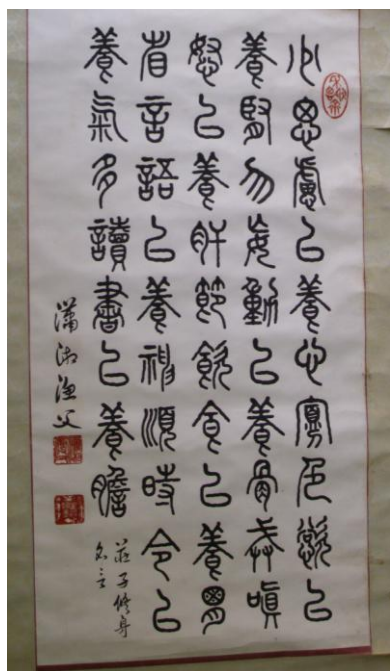 少思慮以養心寡色慾以
養腎勿妄動以養骨戒嗔
怒以養肝節飲食以養胃
省言語以養神順時令以
養氣多讀書以養膽
莊子修身
名言
瀟湘漁父